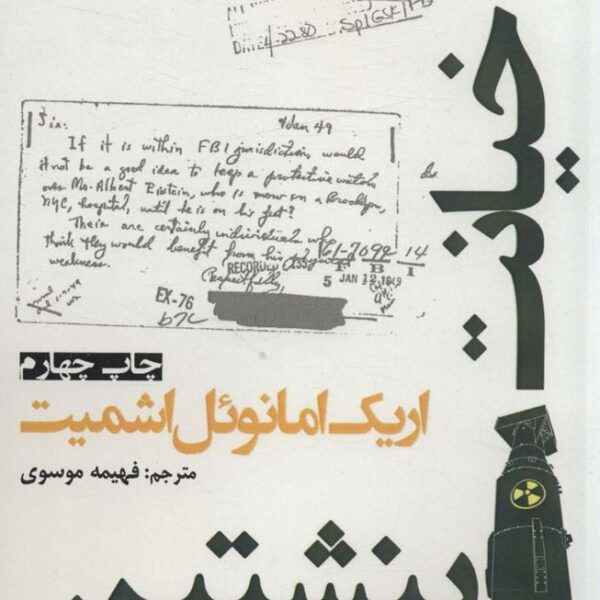 DATE 4-22-80 Sp1GSK/
9 Jan 49
Sir:
If it is within FBI jurisdiction, would
it not be a good idea to keep a protective watch
over Mr. Albert Eistein, who is now in a Brooklyn,
NYC, hospital, until he is on his feet?
Their are certainly individuals who
think they would benefit from his
weakness.
Respectfully,
RECORDED 61-7099 14
F B I
5 JAN 12 1949
EX-76
b7c
خیانت
اینشتین
چاپ چهارم
اریک امانوئل اشمیت
مترجم: فهیمه موسوی